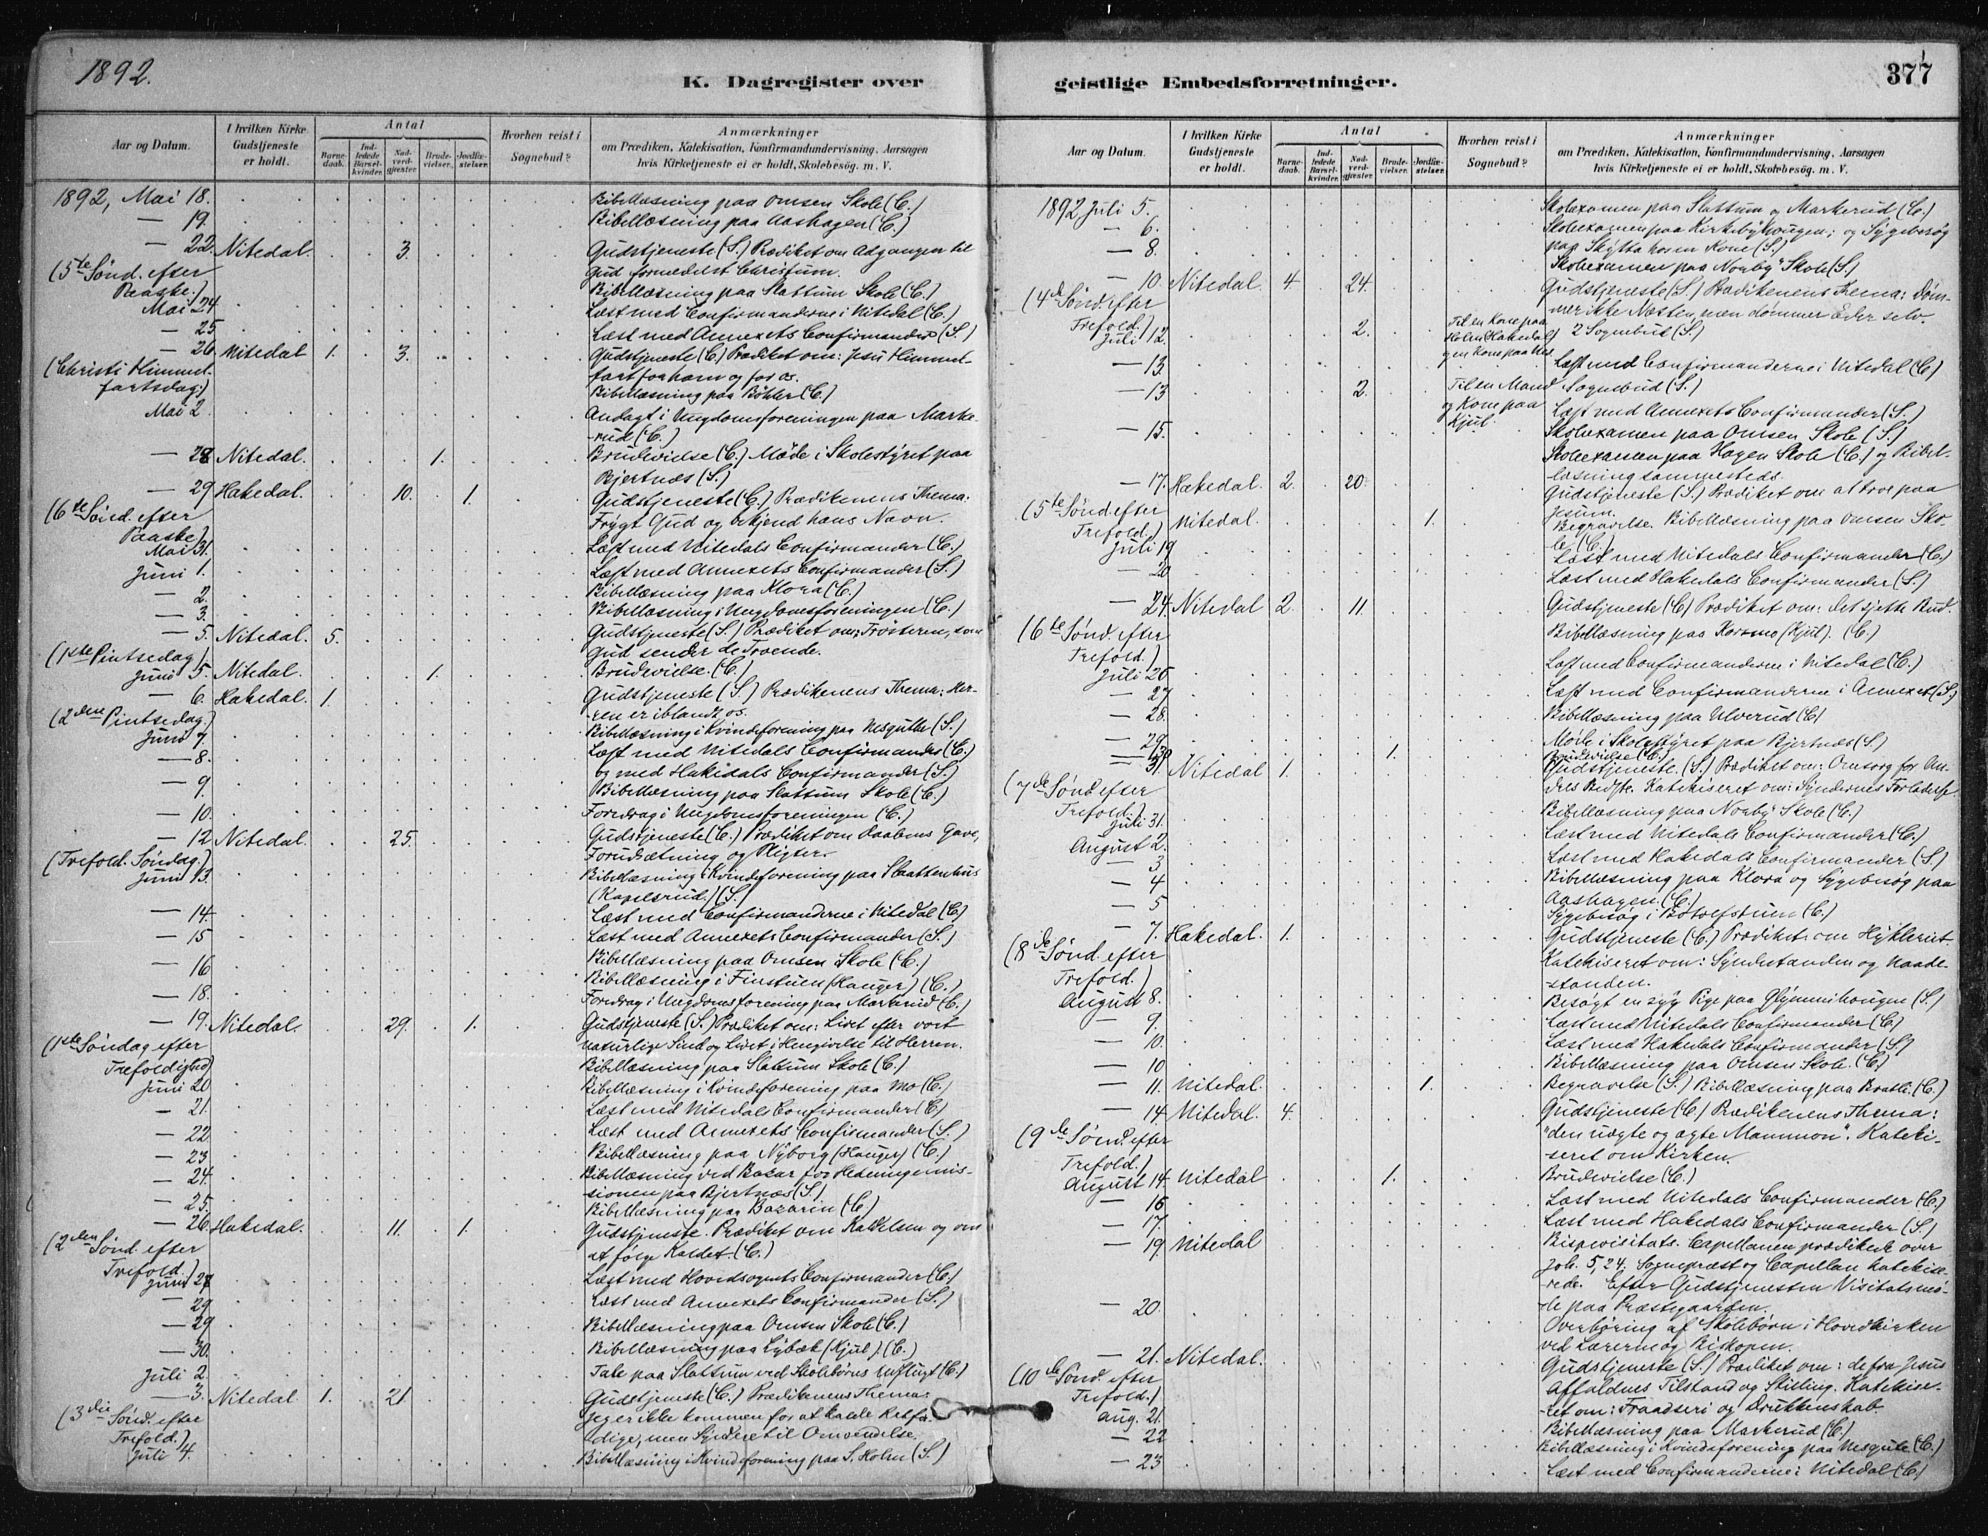 1892.
K. Dagregister over
Aar og Datum.
I hvilken Kirke Gudstjeneste er holdt.
Antal
Barnedaab.
Indledede Barselkvinder.
Nadverdgjæster.
Brudevielser.
Jordfæstelser.
Hvorhen reist i Sognebud?
Anmærkninger
om Prædiken, Katekisation, Konfirmandundervisning, Aarsagen
hvis Kirketjeneste ei er holdt, Skolebesög. m. V.
1892, Mai 18. Bibellæsning paa Omsen Skole (C.)
— 19. Bibellæsning paa Aashagen (C.)
— 22. Nitedal. 3. Gudstjeneste (S.) Prædiket om Adgangen til
(5te Sönd. efter Gud formedelst Christum.
Paaske.) Bibellæsning paa Slattum Skole (C.)
Mai 24 Læst med Confirmanderne i Nitedal (C.)
— 25 Læst med Annexets Confirmander (S.)
— 26 Nitedal 1. 3. Gudstjeneste (C.) Prædiket om: Jesu Himmel-
(Christi Himmel- fart for ham og for os.
fartsdag.) Bibellæsning paa Böhler (C.)
Mai 2 Andagt i Ungdomsforeningen paa Marke-
rud (C.)
— 28 Nitedal. 1. Brudevielse (C.) Möde i Skolestyret paa
Bjertnæs (S.)
— 29 Hakedal. 10. 1. Gudstjeneste (C.) Prædikenens Thema:
(6te Sönd. efter Frygt Gud og erkjend hans Navn.
Paaske) Læst med Nitedals Confirmander (C.)
Mai 31.
Juni 1. Læst med Annexets Confirmander (S.)
— 2. Bibellæsning paa Klora (C.)
— 3. Bibellæsning i Ungdomsforeningen (C.)
— 5. Nitedal 5. Gudstjeneste (S.) Prædiket om: Trösteren, som
(1ste Pintsedag) Gud sender de Troende.
Juni 5. Nitedal. 1. Brudevielse (C.)
— 6. Hakedal. 1. Gudstjeneste (S.) Prædikenens Thema: Her-
(2den Pintsedag.) ren er iblandt os.
Juni 7. Bibellæsning i Kvindeforening paa Nesgutu (S.)
— 8. Læst med Nitedals Confirmander (C.)
og med Hakedals Confirmander (S.)
— 9. Bibellæsning paa Slattum Skole (C.)
— 10. Foredrag i Ungdomsforeningen (C.)
— 12 Nitedal. 25. Gudstjeneste (C.) Prædiket om Daabens Gave,
(Trefold. Söndag.) Forudsætning og Pligter.
Juni 13. Bibellæsning i Kvindeforening paa Slaattenhus
(Kapelsrud.) (S.)
— 14. Læst med Confirmanderne i Nitedal (C.)
— 15 Læst med Annexets Confirmander (S.)
— 16 Bibellæsning paa Omsen Skole (C.)
Bibellæsning i Finstuen (Hauger) (C.)
— 18. Foredrag i Ungdomsforening paa Markerud (C.)
— 19. Nitedal. 29. 1. Gudstjeneste (S.) Prædiket om: Livet efter vort
(1ste Söndag efter naturlige Sind og Livet i Hengivelse til Herren.
Trefoldighed) Bibellæsning paa Slattum Skole (C.)
Juni 20 Bibellæsning i Kvindeforening paa Mo (C.)
— 21. Læst med Nitedals Confirmander (C)
— 22 Læst med Annexets Confirmander (S.)
— 23 Bibellæsning paa Nyborg (Hauger) (C.)
— 24. Bibellæsning ved Bazar for Hedningemis-
sionen paa Bjertnæs (S.)
— 25. Bibellæsning paa Bazarin (C.)
— 26. Hakedal. 11. 1. Gudstjeneste. Prædiket om Kaldelsen og om
(2den Sönd. efter at fölge Kaldet. (C.)
Trefold.)
Juni 28 Læst med Hovedsognets Confirmander (C.)
— 29 Læst med Annexets Confirmander (S.)
— 29 Bibellæsning paa Omsen Skole (C.)
— 30. Bibellæsning paa Lybæk (Kjul). (C.)
Juli 2 Tale paa Slattum ved Skolebörns Udflugt (C.)
— 3. Nitedal 1. 21 Gudstjeneste (C.) Prædikenens Thema:
(3die Sönd. efter Jeg er ikke kommen for at kalde Retfær-
Trefold.) dige, men Syndere til Omvendelse.
Juli 4. Bibellæsning i Kvindeforening paa S. Holm (S.)
geistlige Embedsforretninger.
377
Aar og Datum.
I hvilken Kirke Gudstjeneste er holdt.
Antal
Barnedaab.
Indledede Barselkvinder.
Nadverdgjæster.
Brudevielser.
Jordfæstelser.
Hvorhen reist i Sognebud?
Anmærkninger
om Prædiken, Katekisation, Konfirmandundervisning, Aarsagen
hvis Kirketjeneste ei er holdt, Skolebesög. m. V.
1892 Juli 5. Skoleexamen paa Slattum og Markerud (C.)
— 6. Skoleexamen paa Kirkebyhougen; og Sygebesög
paa Skytta hos en Kone (S.)
— 8. Skoleexamen paa Nordby Skole (S.)
— 10. Nitedal 4. 24. Gudstjeneste (S.) Prædikenens Thema: Döm-
(4de Sönd efter mer ikke Næsten men dömmer Eder selv.
Trefold.)
Juli 12. 2. Til en Kone paa Holm (Hakedal) og en Kone paa Nes. 2 Sognebud (S.)
— 13. Læst med Confirmanderne i Nitedal (C)
— 13 2. Til en Mand og Kone paa Kjul. Sognebud (S.)
Læst med Annexets Confirmander (S.)
— 15. Skoleexamen paa Omsen Skole (S.)
Skoleexamen paa Hagen Skole (C.) og Bibel-
læsning sammesteds.
— 17. Hakedal. 2. 20. Gudstjeneste (S.) Prædiket om at troe paa
(5te Sönd efter Jesum.
Trefold.) Nitedal. 1. Begravelse. Bibellæsning paa Omsen Sko-
le (C.)
Juli 19 Læst med Nitedals Confirmander (C.)
— 20 Læst med Hakedals Confirmander (S.)
— 24. Nitedal 2. 11. Gudstjeneste (C) Prædiket om: det sjette Bud.
(6te Sönd. efter Bibellæsning paa Korsmo (Kjul). (C.)
Trefold.)
Juli 26 Læst med Confirmanderne i Nitedal (C.)
— 27 Læst med Confirmanderne i Annexet (S.)
— 28. Bibellæsning paa Ulverud (C)
— 29 Möde i Skolestyret paa Bjertnæs (S.)
— 30 1. Brudevielse (C.)
— 31. Nitedal 1. Gudstjeneste. (S.) Prædiket om: Omsorg for An-
(7de Sönd efter dres Bedste. Katekiseret om: Syndernes Forladelse.
Trefold.)
Juli 31. Bibellæsning paa Nordby Skole (C.)
August 2. Læst med Nitedals Confirmander (C.)
— 3 Læst med Hakedals Confirmander (S.)
— 4 Bibellæsning paa Klora og Sygebesög paa
Aashagen. (C.)
— 5 Sygebesög i (C.)
— 7. Hakedal. 1. Gudstjeneste (C.) Prædiket om Hykleriet.
(8de Sönd. efter Katekiseret om: Syndestanden og Naade-
Trefold.) standen.
August 8. Besögt en syg Pige paa Glymmihougen (S.)
— 9. Læst med Nitedals Confirmander (C)
— 10. Læst med Hakedals Confirmander (S.)
— 10 Bibellæsning paa Omsen Skole. (C.)
— 11. Nitedal. 1. Begravelse (S.) Bibellæsning paa Bratli. (C.)
— 14. Nitedal. 4. Gudstjeneste (C.) Prædikenens Thema:
(9de Sönd. efter "den uægte og ægte Mammon". Kateki-
Trefold.) seret om Kirken.
August 14. Nitedal 1. Brudevielse (C.)
— 16 Læst med Nitedals Confirmander (C.)
— 17. Læst med Hakedals Confirmander (S.)
— 19 Nitedal Bispevisitats. Capellanen prædikede over
Joh. 5,24. Sognepræst og Capellan katekise-
rede. Efter Gudstjenesten Visitatsmö-
de paa Præstegaarden.
— 20. Overhöring af Skolebörn i Hovedkirken
ved Lærerne og Biskopen.
— 21. Nitedal. Gudstjeneste (S.) Prædiket om: de fra Jesus
(10de Sönd. efter Affaldnes Tilstand og Stilling. Katekise-
Trefold.) ret om: Fraadseri og Drukkenskab.
Aug. 21. Bibellæsning paa Markerud (C.)
— 22 Bibellæsning i Kvindeforening paa Nesgutu (C.)
— 23 Læst med Confirmanderne i Nitedal (C.)